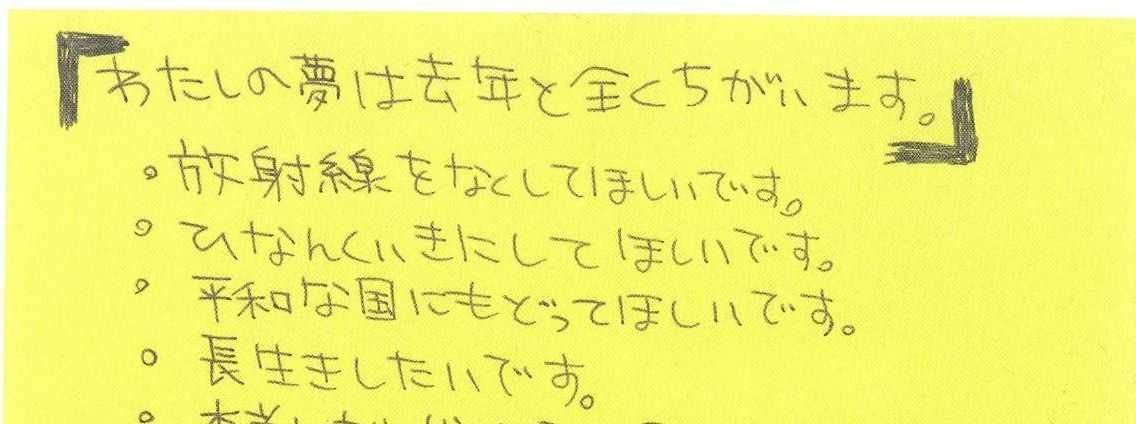 『わたしの夢は去年と全くちがいます。』
。放射線をなくしてほしいです。
。ひなんくいきにしてほしいです。
。平和な国にもどってほしいです。
。長生きしたいです。